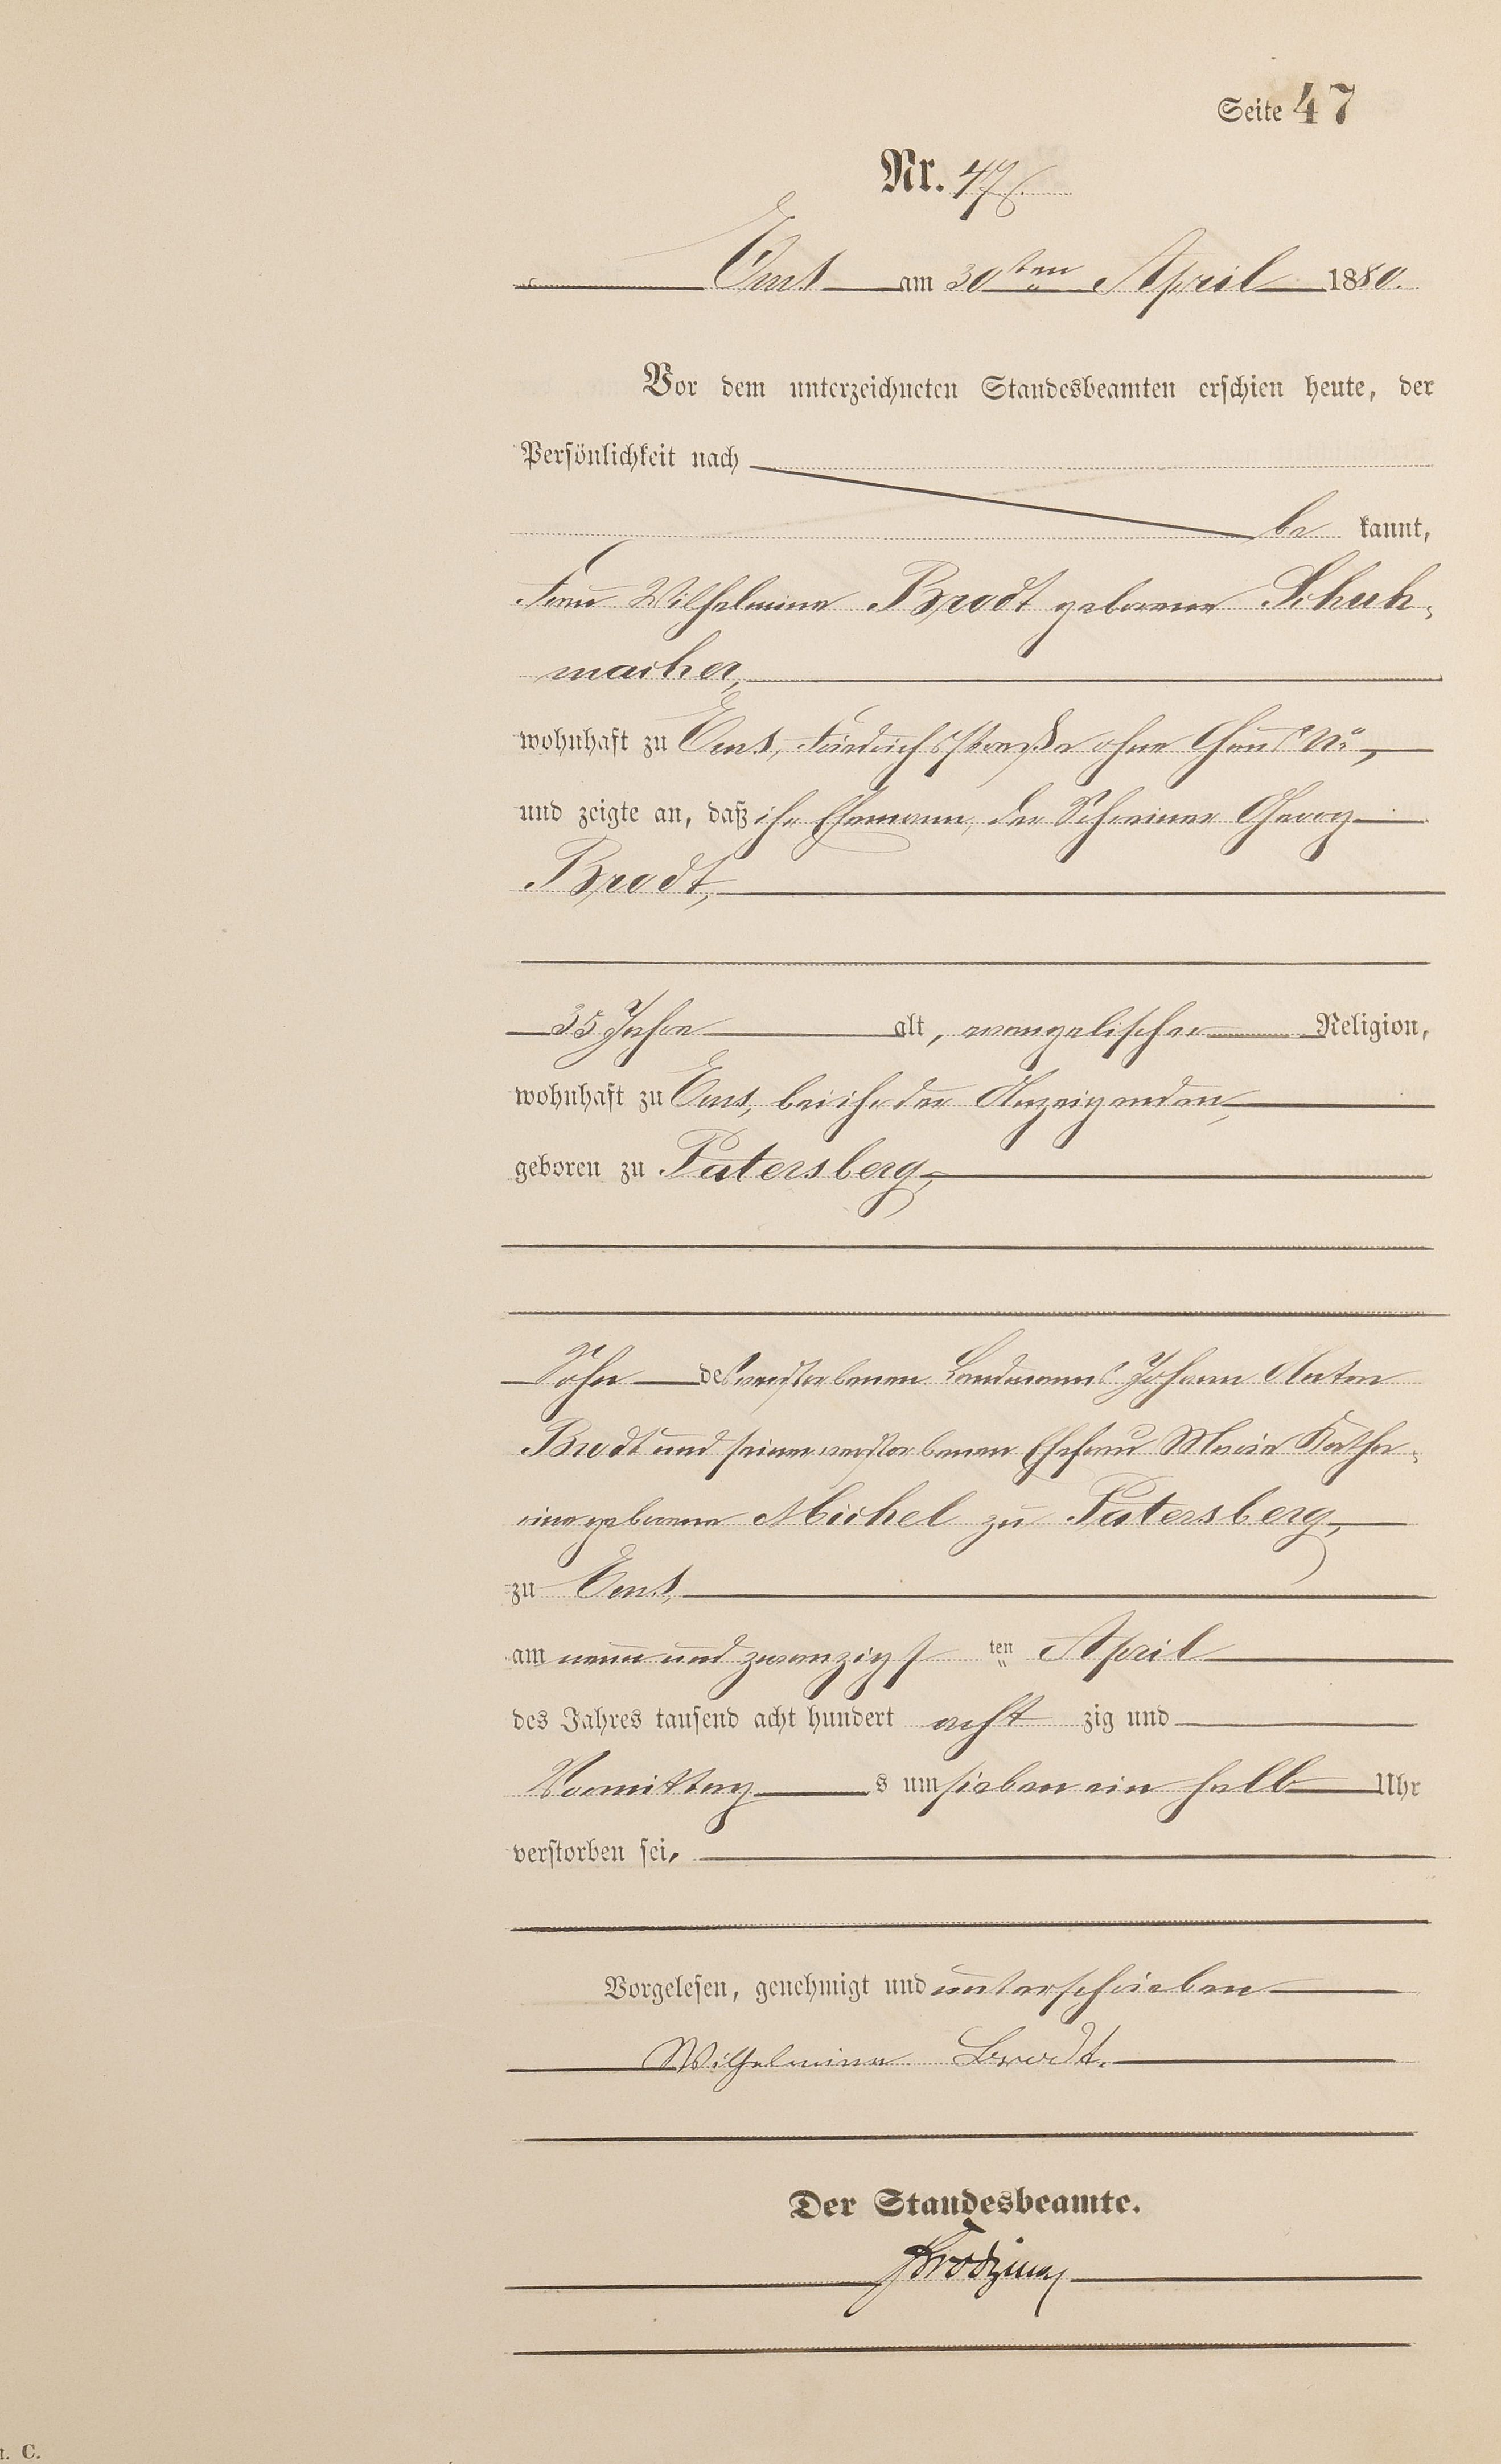 Seite 47
Nr. 47.
Ems am 30ten April 1880.
Vor dem unterzeichneten Standesbeamten erschien heute, der
Persönlichkeit nach
be kannt,
Frau Wilhelmine Brodt geborene Schuh-
macher,
wohnhaft zu Ems, Friedrichsstraße ohne Haus No,
und zeigte an, daß ihr Ehemann, der Schreiner Georg
Brodt,
35 Jahre alt, evangelischer Religion,
wohnhaft zu Ems, bei ihr der Anzeigenden,
geboren zu Patersberg,
Sohn des verstorbenen Landmanns Johann Anton
Brodt und seiner verstorbenen Ehefrau Marie Katha-
rine geborene Michel zu Patersberg,
zu Ems,
am neun und zwanzigs ten April
des Jahres tausend acht hundert acht zig und
Vormittag s um sieben ein halb Uhr
verstorben sei,
Vorgelesen, genehmigt und unterschrieben
Wilhelmine Brodt.
Der Standesbeamte.
C.